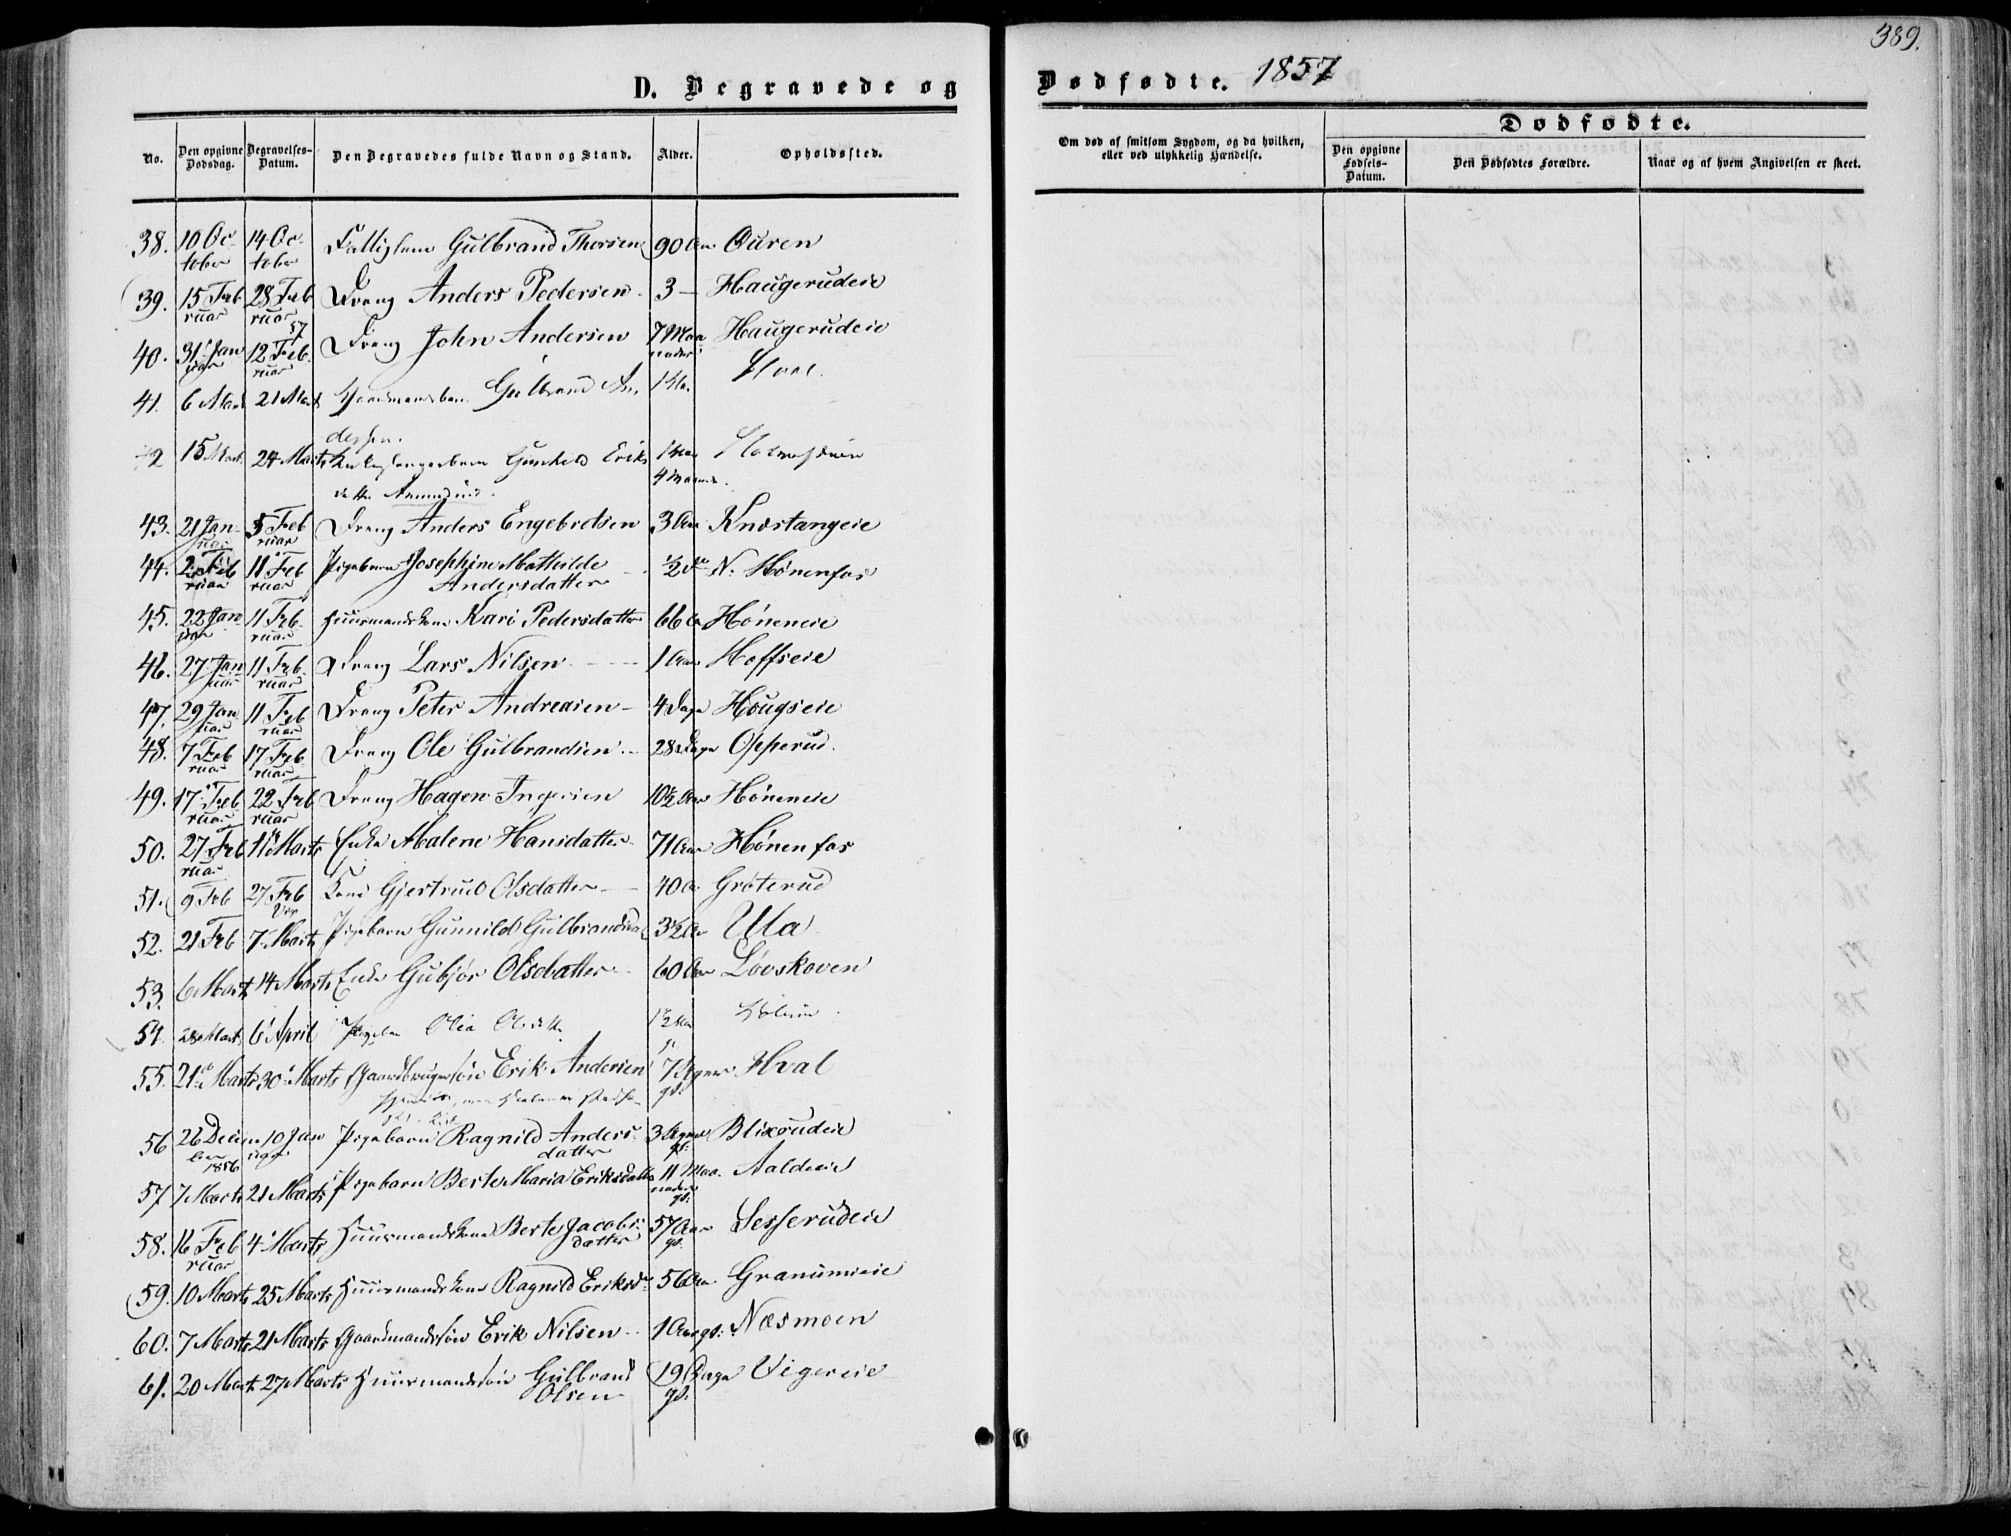 389.
D. Begravede og
Dødfødte. 1857
No.
Den opgivne Dødsdag.
Begravelses-Datum.
Den Begravedes fulde Navn og Stand.
Alder.
Opholdssted.
Om død af smitsom Sygdom, og da hvilken, eller ved ulykkelig Hændelse.
Dødfødte.
Den opgivne Fødsels-Datum.
Den Dødfødtes Forældre.
Naar og af hvem Angivelsen er skeet.
38. 10 October 14 October Gulbrand Thorsen 90 Aar Ouren
39. 15 Februar 28 Februar Dreng Anders Pedersen 3 — Haugerudeie
40. 31 Januar 57 12 Februar Dreng John Andersen 7 Maaneder Haugerudeie
41. 6 Marts 21 Marts Gaardmandsbarn Gulbrand An- Hval.
dersen.
42 15 Marts 24 Marts Gunhild Eriks 1 Aar
datter 4 Maaned.
43. 21 Januar 5 Februar Dreng Anders Engebretsen 3 Aar Knæstangeie
44. 2 Februar 11 Februar Pigebarn Josephine Mathilde ½ Aar N. Hønenfos
Andersdatter
45. 22 Januar 11 Februar Huusmandskone Kari Pedersdatter 66 Aar Høneneie
46. 27 Januar 11 Februar Dreng Lars Nilsen 1 Aar Hoffseie
47. 29 Januar 11 Februar Dreng Peter Andreasen 4 Dage Hougseie
48. 7 Februar 17 Februar Dreng Ole Gulbrandsen 28 Dage Opperud.
49. 17 Februar 22 Februar Dreng Hagen 10½ Aar Høneneie
50. 27 Februar 11 Marts Enke Malene Hansdatter 71 Aar Hønenfos
51. 9 Feb 27 Feb Kone Gjertrud Olsdatter 40 Aar Grøterud
52. 21 Feb 7 Marts Pigebarn Gunnild Gulbrandsd. 3½ Aar Ula
53. 6 Marts 14 Marts Enke Gubjør Olsdatter 60 Aar Løvskoven
54. 28 Marts 6 April Pigebarn Olia
55. 21 Marts 30 Marts Gaardbrugersøn Erik Andersen 7 Uger gl. Hval
56 26 December 1856 10 Januar Pigebarn Ragnild Anders- 3 Uger gl. Blixrudeie
datter
57 7 Marts 21 Marts Pigebarn Berte Maria Eriksdatter 11 Maaneder gl. Aaldeie
58. 16 Februar 4 Marts Huusmandskone Berte Jacobs- 57 Aar gl. Sesserudeie
datter
59. 10 Marts 25 Marts Huusmandskone Ragnild Eriksd. 56 Aar Granumeie
60. 7 Marts 21 Marts Gaardmandssøn Erik Nilsen 1 Aar gl. Næsmoen
61. 20 Marts 27 Marts Huusmandssøn Gulbrand 19 Dage gl. Vigereie
Olsen